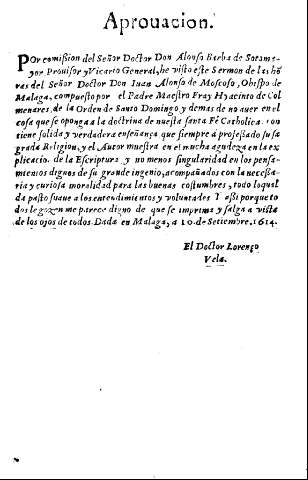 Aprouacion.
POr comission del Señor Doctor Don Alonso Barba de Sotome-
yor, Prouisor y Vicario General, he visto este Sermon de las hō
ras del Señor Doctor Don Iuan Alonso de Moscoso, Obispo de
Malaga, compuesto por el Padre Maestro Fray Hyacinto de Col
menares, de la Orden de Santo Domingo, y demas de no auer en el
cosa que se oponga a la doctrina de nuestra santa Fé Catholica, con
tiene solida y verdadera enseñança que siempre à professado su sa
grada Religion, y el Autor muestra en el mucha agudeza en la ex
plicacio. de la Escriptura y no menos singularidad en los pensa-
mientos dignos de su grande ingenio, acompañados con la necessa-
ria y curiosa moralidad para las buenas costumbres, todo lo qual
da pasto suaue a los entendimientos y voluntades Y assi porque to
dos le gozen me parece digno de que se imprima y salga a vista
de los ojos de todos. Dada en Malaga, a 10. de Setiembre. 1614.
El Doctor Lorenço
Vela.